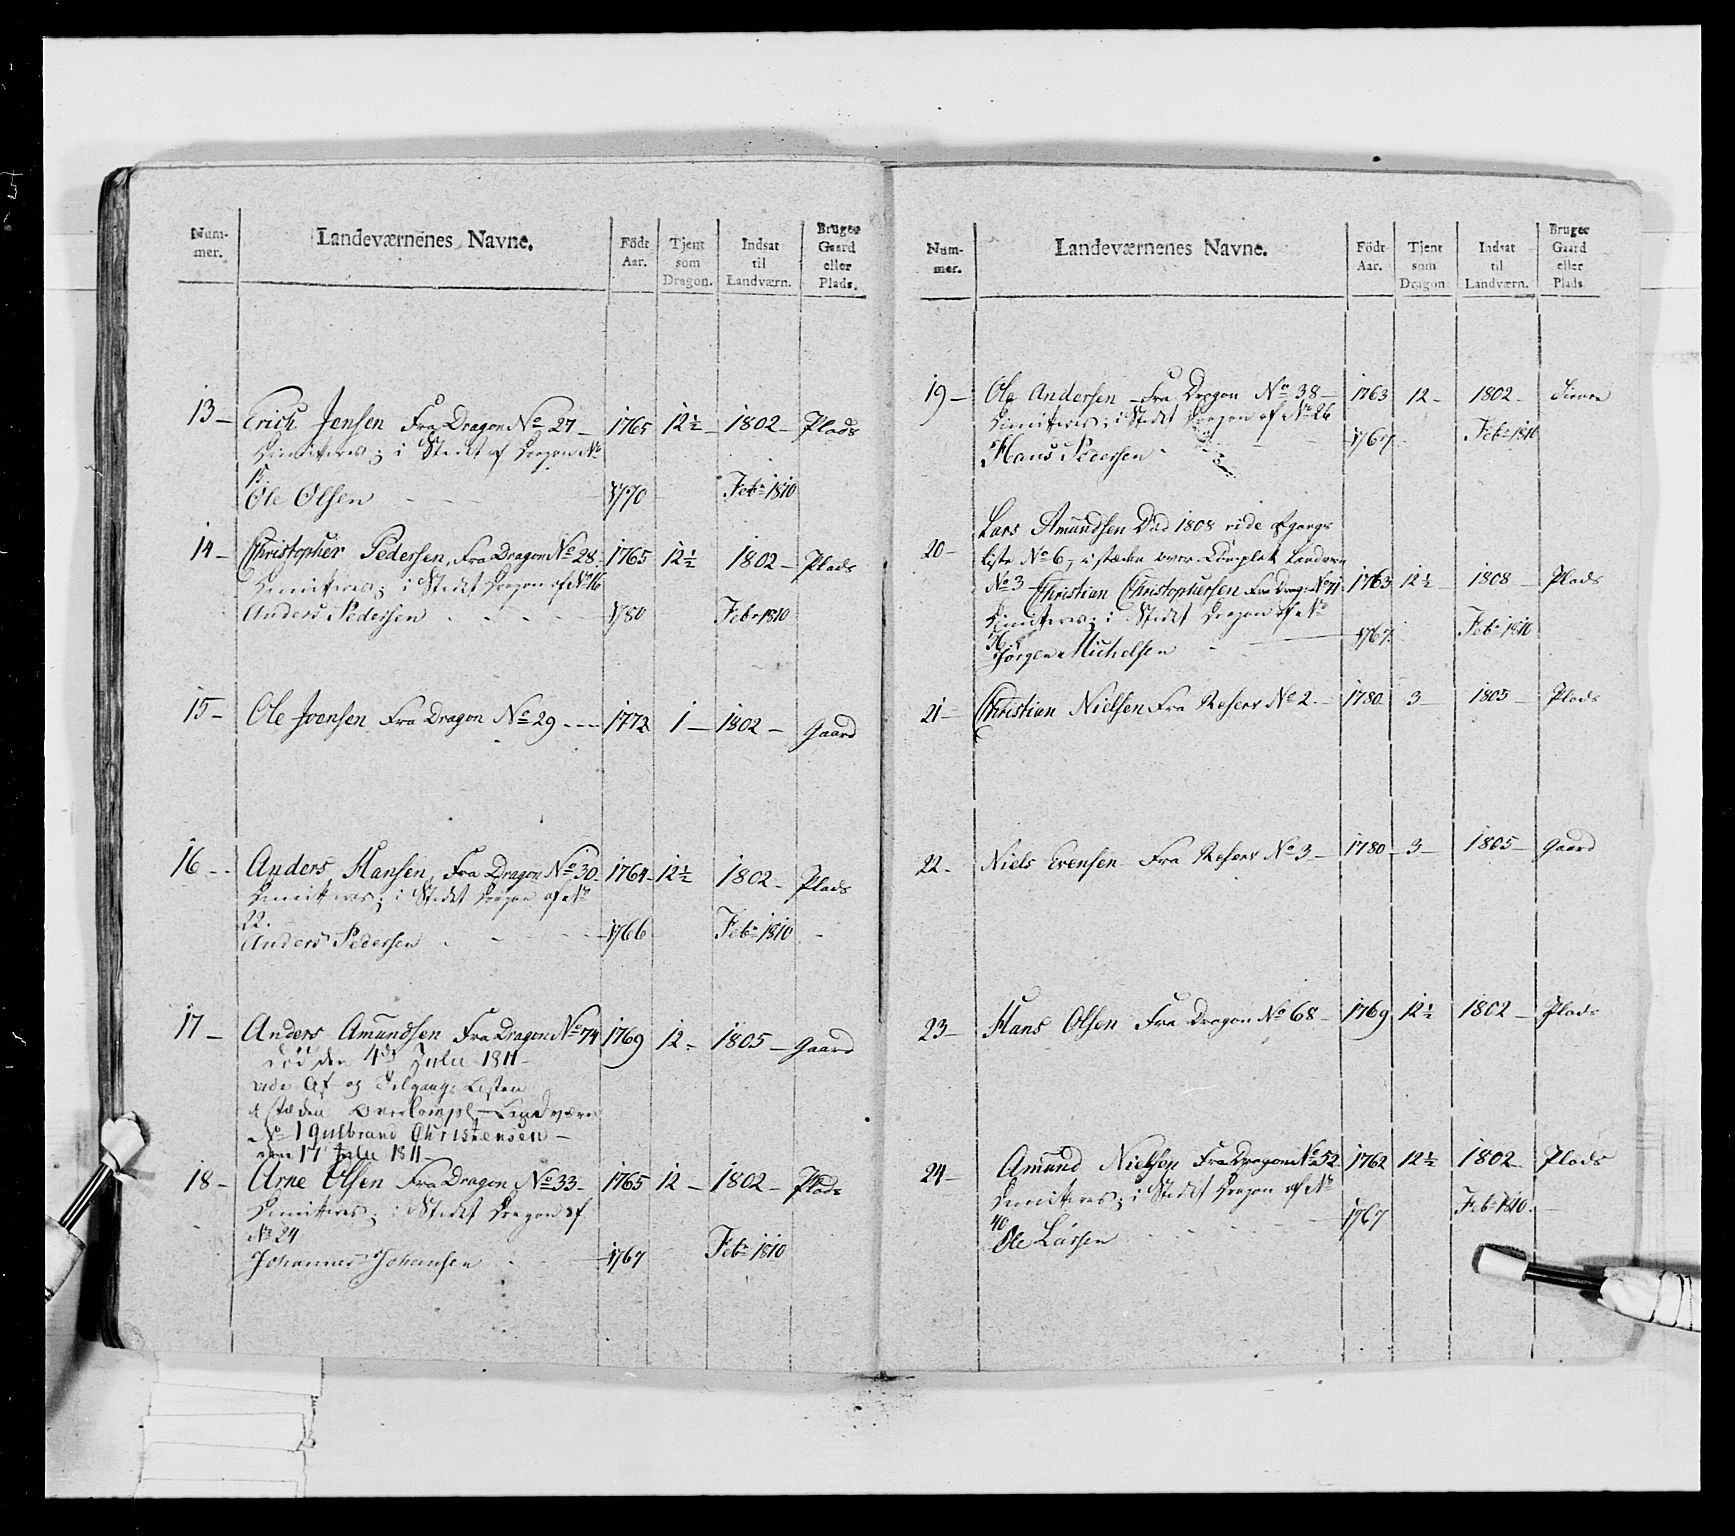 Num-
mer.
Landeværnenes Navne.
Födt
Aar.
Tjent
som
Dragon.
Indsat
til
Landværn.
Bruger
Gaard
eller
Plads.
13 – Erich Jensen Fra Dragon No 27 – 1765 12½ – 1802 – Plads
Dimitteres; i Stedet af Dragon No
15.
Ole Olsen 1770 Febr 1810
14 – Christopher Pedersen, Fra Dragon No 28. 1765 12½ 1802 – Plads
Dimitteres; i Stedet Dragon af No 16
Anders Pedersen 1780 Febr 1810
15 – Ole Ivensen Fra Dragon No 29 1772 1 – 1802 – Gaard
16 – Anders Hansen, Fra Dragon No 30. 1764 – 12½ 1802 – Plads
Dimitteres; i Stedet Dragon af No
22.
Anders Pedersen 1766 Febr 1810
17 – Anders Amundsen Fra Dragon No 74 1769 12 – 1805 – Gaard
død den 4de Julii 1811 –
vide Af og Tilgangs Listen
i stæden Overkompl – Landværn
No 1 Gulbrand Christensen –
den 17 Julii 1811 –
18 – Arne Olsen Fra Dragon No 33 – 1765 12 – 1802 – Plads
Dimitteres; i Stedet Dragon af
No 24
Johannes Johansen 1767 Febr 1810
Num-
mer.
Landeværnenes Navne.
Födt
Aar.
Tjent
som
Dragon.
Indsat
til
Landværn.
Bruger
Gaard
eller
Plads.
19 – Ole Andersen – Fra Dragon No 38 – 1763 12 – 1802 –
Dimitteres; i Stedet Dragon af No 26
Hans Pedersen 1767 Febr 1810
Lars Amundsen Död 1808 vide afgangs
20 – liste No 6, i stæden over Complet Landværn
No 3 Christian Christophersen Fra Drag: No 71 1763 12½ 1808 – Plads
Dimitteres; i Stedet Dragon af No
36.
Jörgen Michelsen 1767. Febr 1810
21 – Christian Nielsen Fra Reserv No 2. – 1780 3 – 1805 – Plads
22 – Niels Evensen – Fra Reserv No 3 – 1780 – 3 – 1805 – Gaard
23 – Hans Olsen Fra Dragon No 68 – 1769 12½ 1802 – Plads
24 – Amund Nielsen Fra Dragon No 52 1762 12½ 1802 – Plads
Dimitteres; i Stedet Dragon af No
40.
Ole Larsen 1767 Febr 1810.